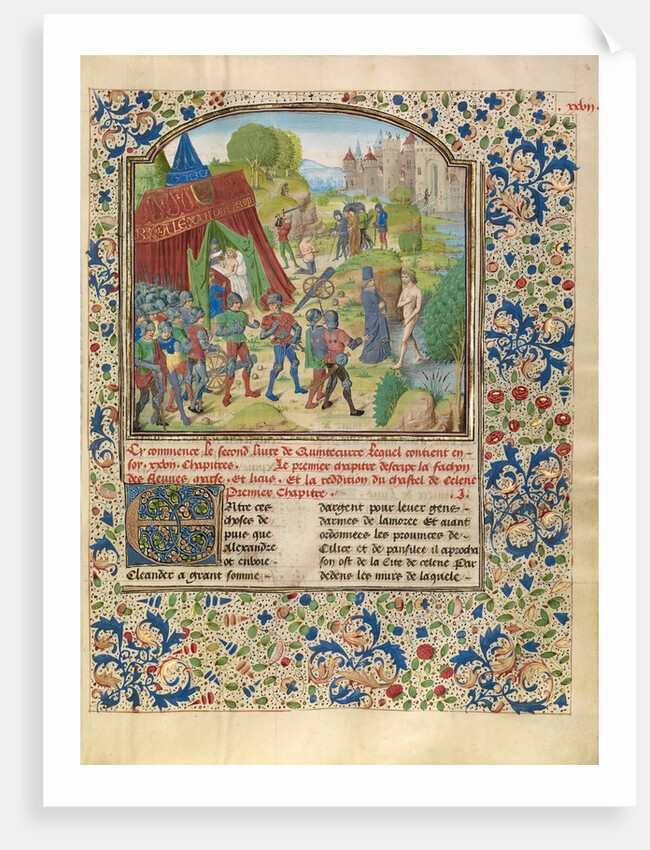 xxvij
ALEXANDRE
Cy commence le second livre de Quintecurce lequel contient en-
soy .xxvij. Chapitres. Le premier chapitre descript la fachon
des fleuves marse. et licus. Et la reddition du chastel de celene
Premier Chapitre. .I.
Entre ces
choses de
puis que
Alexandre
ot envoie
Cleander a grant somme
dargent pour lever gens
darmes de lamoree Et aiant
ordonnees les provinces de
Cilice et de panfilee il aprocha
son ost de la Cite de celene Par
dedens les murs de laquele